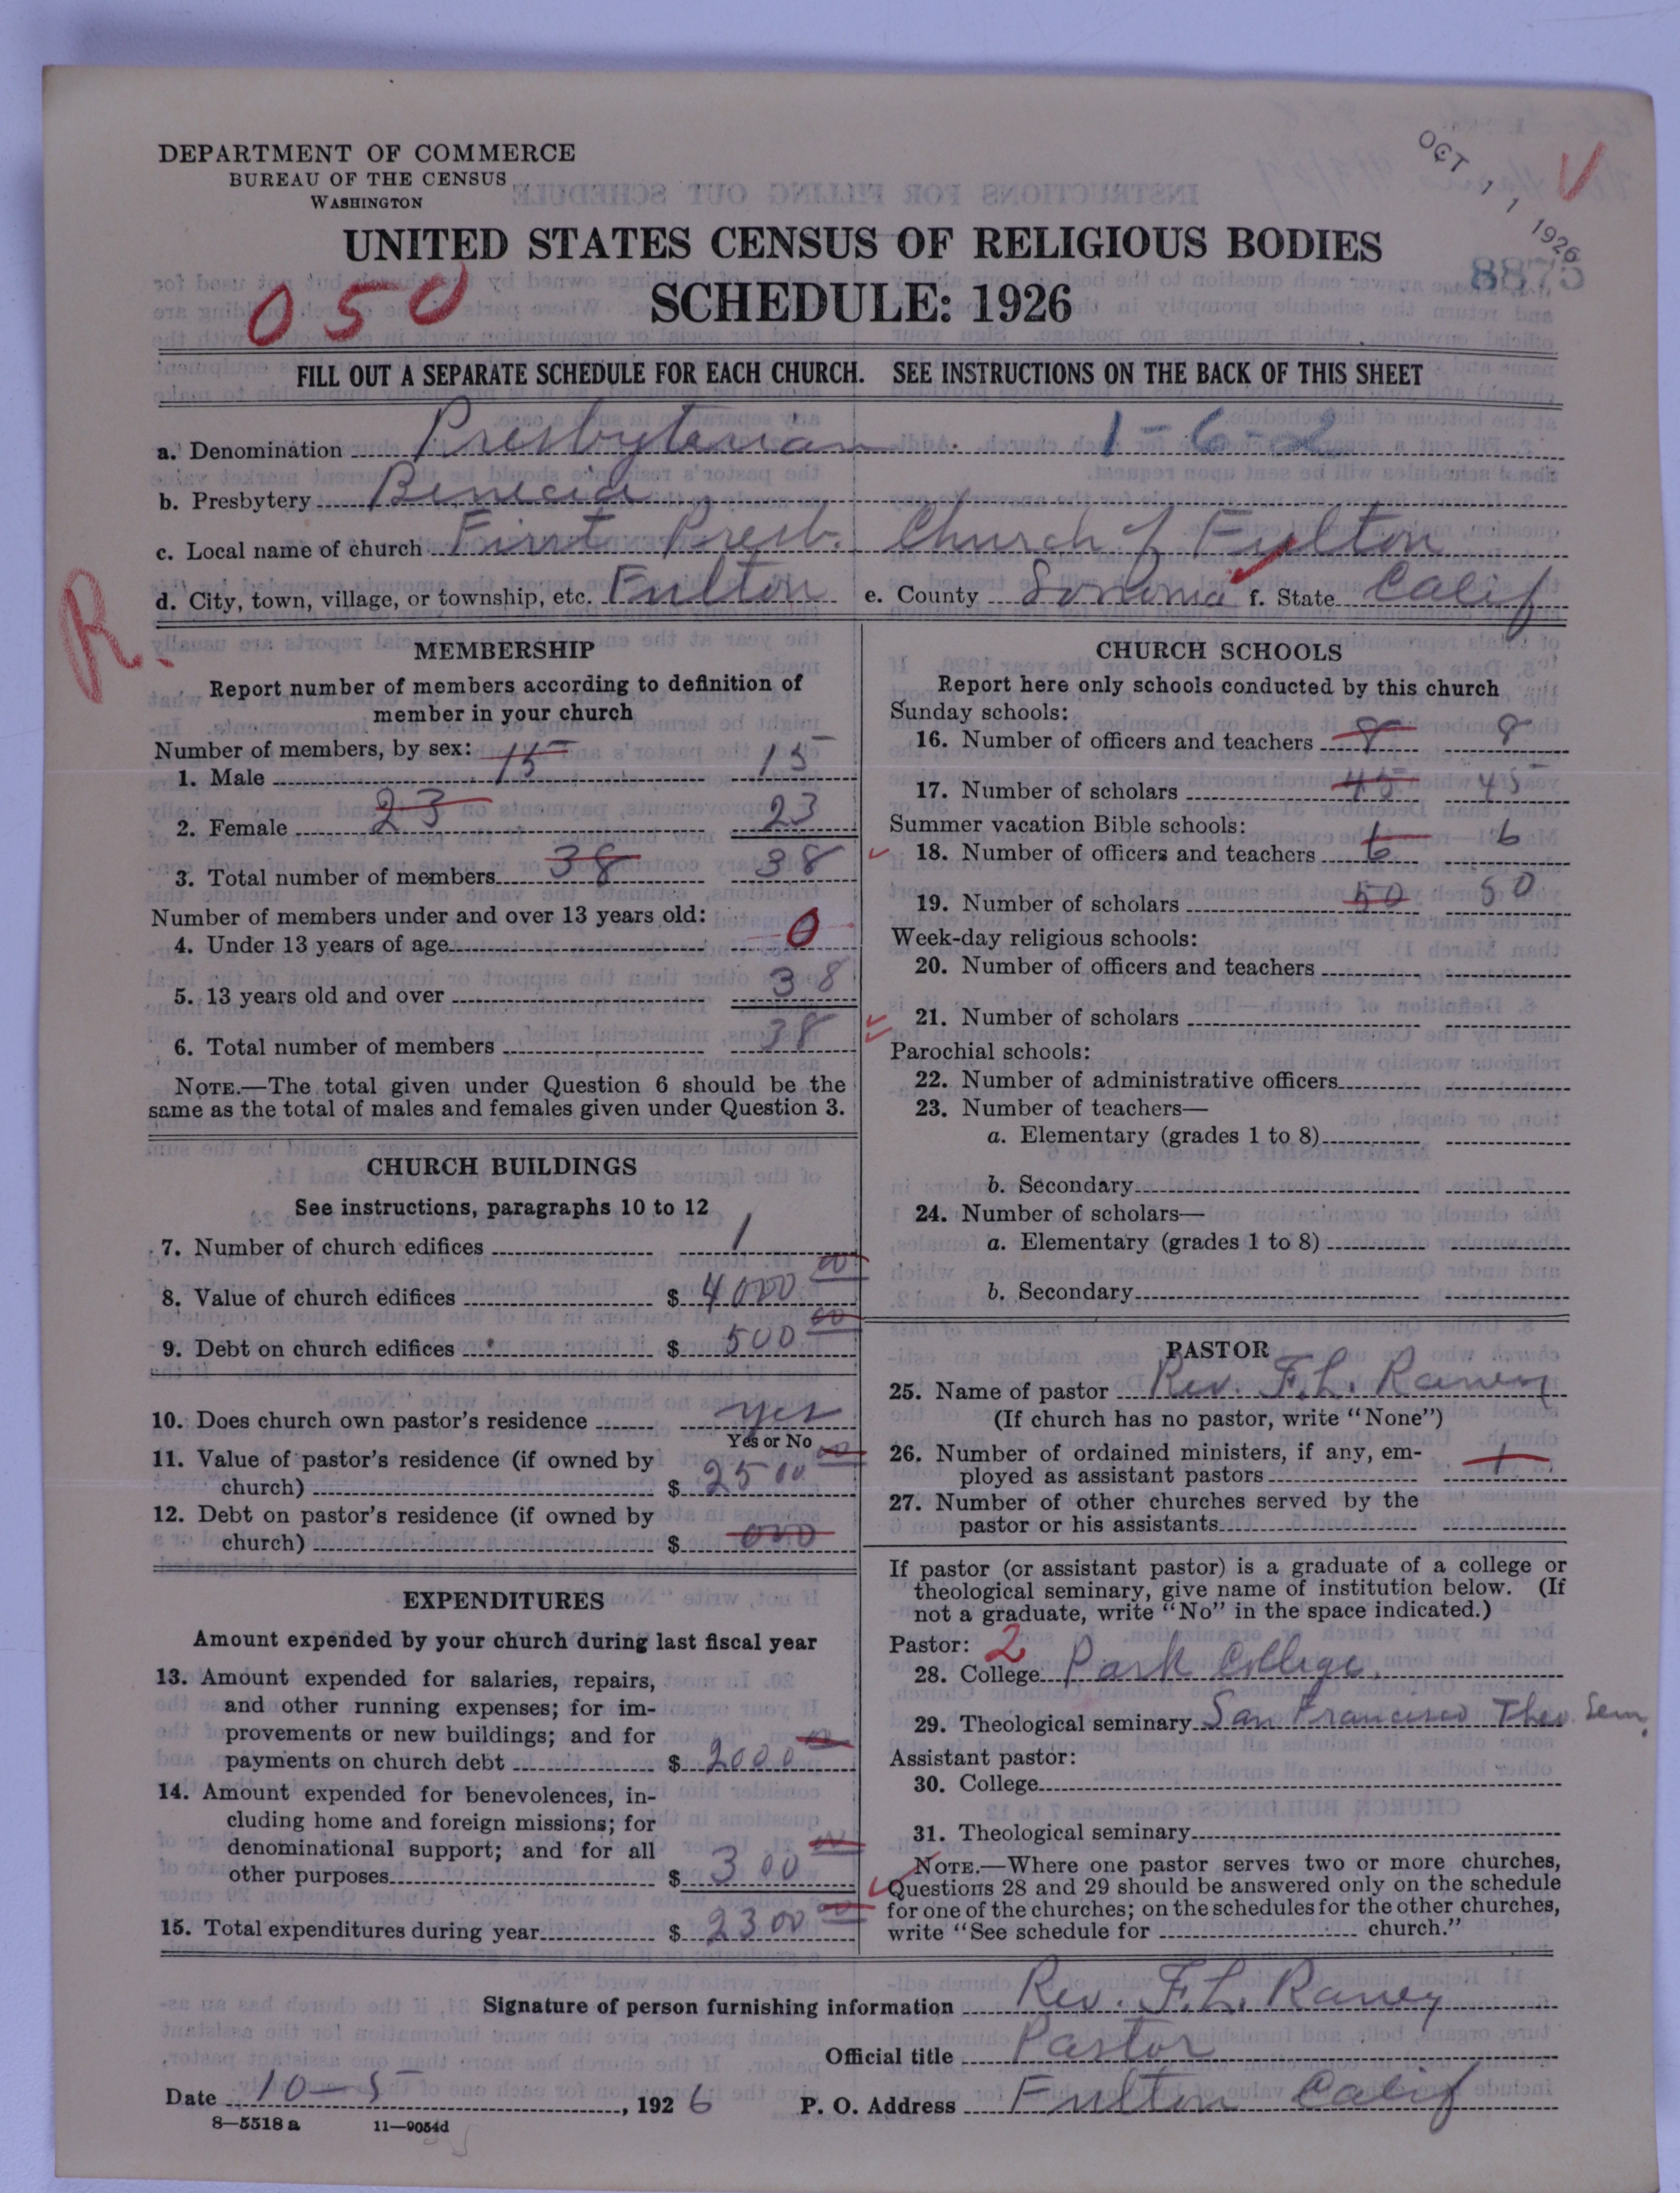 DEPARTMENT OF COMMERCE
BUREAU OF THE CENSUS
WASHINGTON
OCT 11 1926
UNITED STATES CENSUS OF RELIGIOUS BODIES
8875
050
SCHEDULE: 1926
FILL OUT A SEPARATE SCHEDULE FOR EACH CHURCH. SEE INSTRUCTIONS ON THE BACK OF THIS SHEET
a. Denomination Presbyterian 1-6-2
b. Presbytery Benecia
c. Local name of church First Presb. Church of Fulton
d. City, town, village, or township, etc. Fulton e. County Sonoma f. State Calif
R.
MEMBERSHIP
Report number of members according to definition of
member in your church
Number of members, by sex:
1. Male 15 15
2. Female 23 23
3. Total number of members 38 38
Number of members under and over 13 years old:
4. Under 13 years of age 0
5. 13 years old and over 38
6. Total number of members 38
NOTE.—The total given under Question 6 should be the
same as the total of males and females given under Question 3.
CHURCH BUILDINGS
See instructions, paragraphs 10 to 12
7. Number of church edifices 1
8. Value of church edifices $ 4000 00
9. Debt on church edifices $ 500 00
10. Does church own pastor's residence yes
Yes or No
11. Value of pastor's residence (if owned by
church) $ 2500 00
12. Debt on pastor's residence (if owned by
church) $ 000
EXPENDITURES
Amount expended by your church during last fiscal year
13. Amount expended for salaries, repairs,
and other running expenses; for im-
provements or new buildings; and for
payments on church debt $ 2000 00
14. Amount expended for benevolences, in-
cluding home and foreign missions; for
denominational support; and for all
other purposes $ 300 00
15. Total expenditures during year $ 2300 00
CHURCH SCHOOLS
Report here only schools conducted by this church
Sunday schools:
16. Number of officers and teachers 8 8
17. Number of scholars 45 45
Summer vacation Bible schools:
18. Number of officers and teachers 6 6
19. Number of scholars 50 50
Week-day religious schools:
20. Number of officers and teachers
21. Number of scholars
Parochial schools:
22. Number of administrative officers
23. Number of teachers—
a. Elementary (grades 1 to 8)
b. Secondary
24. Number of scholars—
a. Elementary (grades 1 to 8)
b. Secondary
PASTOR
25. Name of pastor Rev. F. L. Raney
(If church has no pastor, write "None")
26. Number of ordained ministers, if any, em-
ployed as assistant pastors 1
27. Number of other churches served by the
pastor or his assistants
If pastor (or assistant pastor) is a graduate of a college or
theological seminary, give name of institution below. (If
not a graduate, write "No" in the space indicated.)
Pastor: 2
28. College Park College
29. Theological seminary San Francisco Theo. Sem.
Assistant pastor:
30. College
31. Theological seminary
NOTE.—Where one pastor serves two or more churches,
Questions 28 and 29 should be answered only on the schedule
for one of the churches; on the schedules for the other churches,
write "See schedule for church."
Signature of person furnishing information Rev. F. L. Raney
Official title Pastor
Date 10-5, 1926 P. O. Address Fulton Calif
8—5518 a 11—9054d